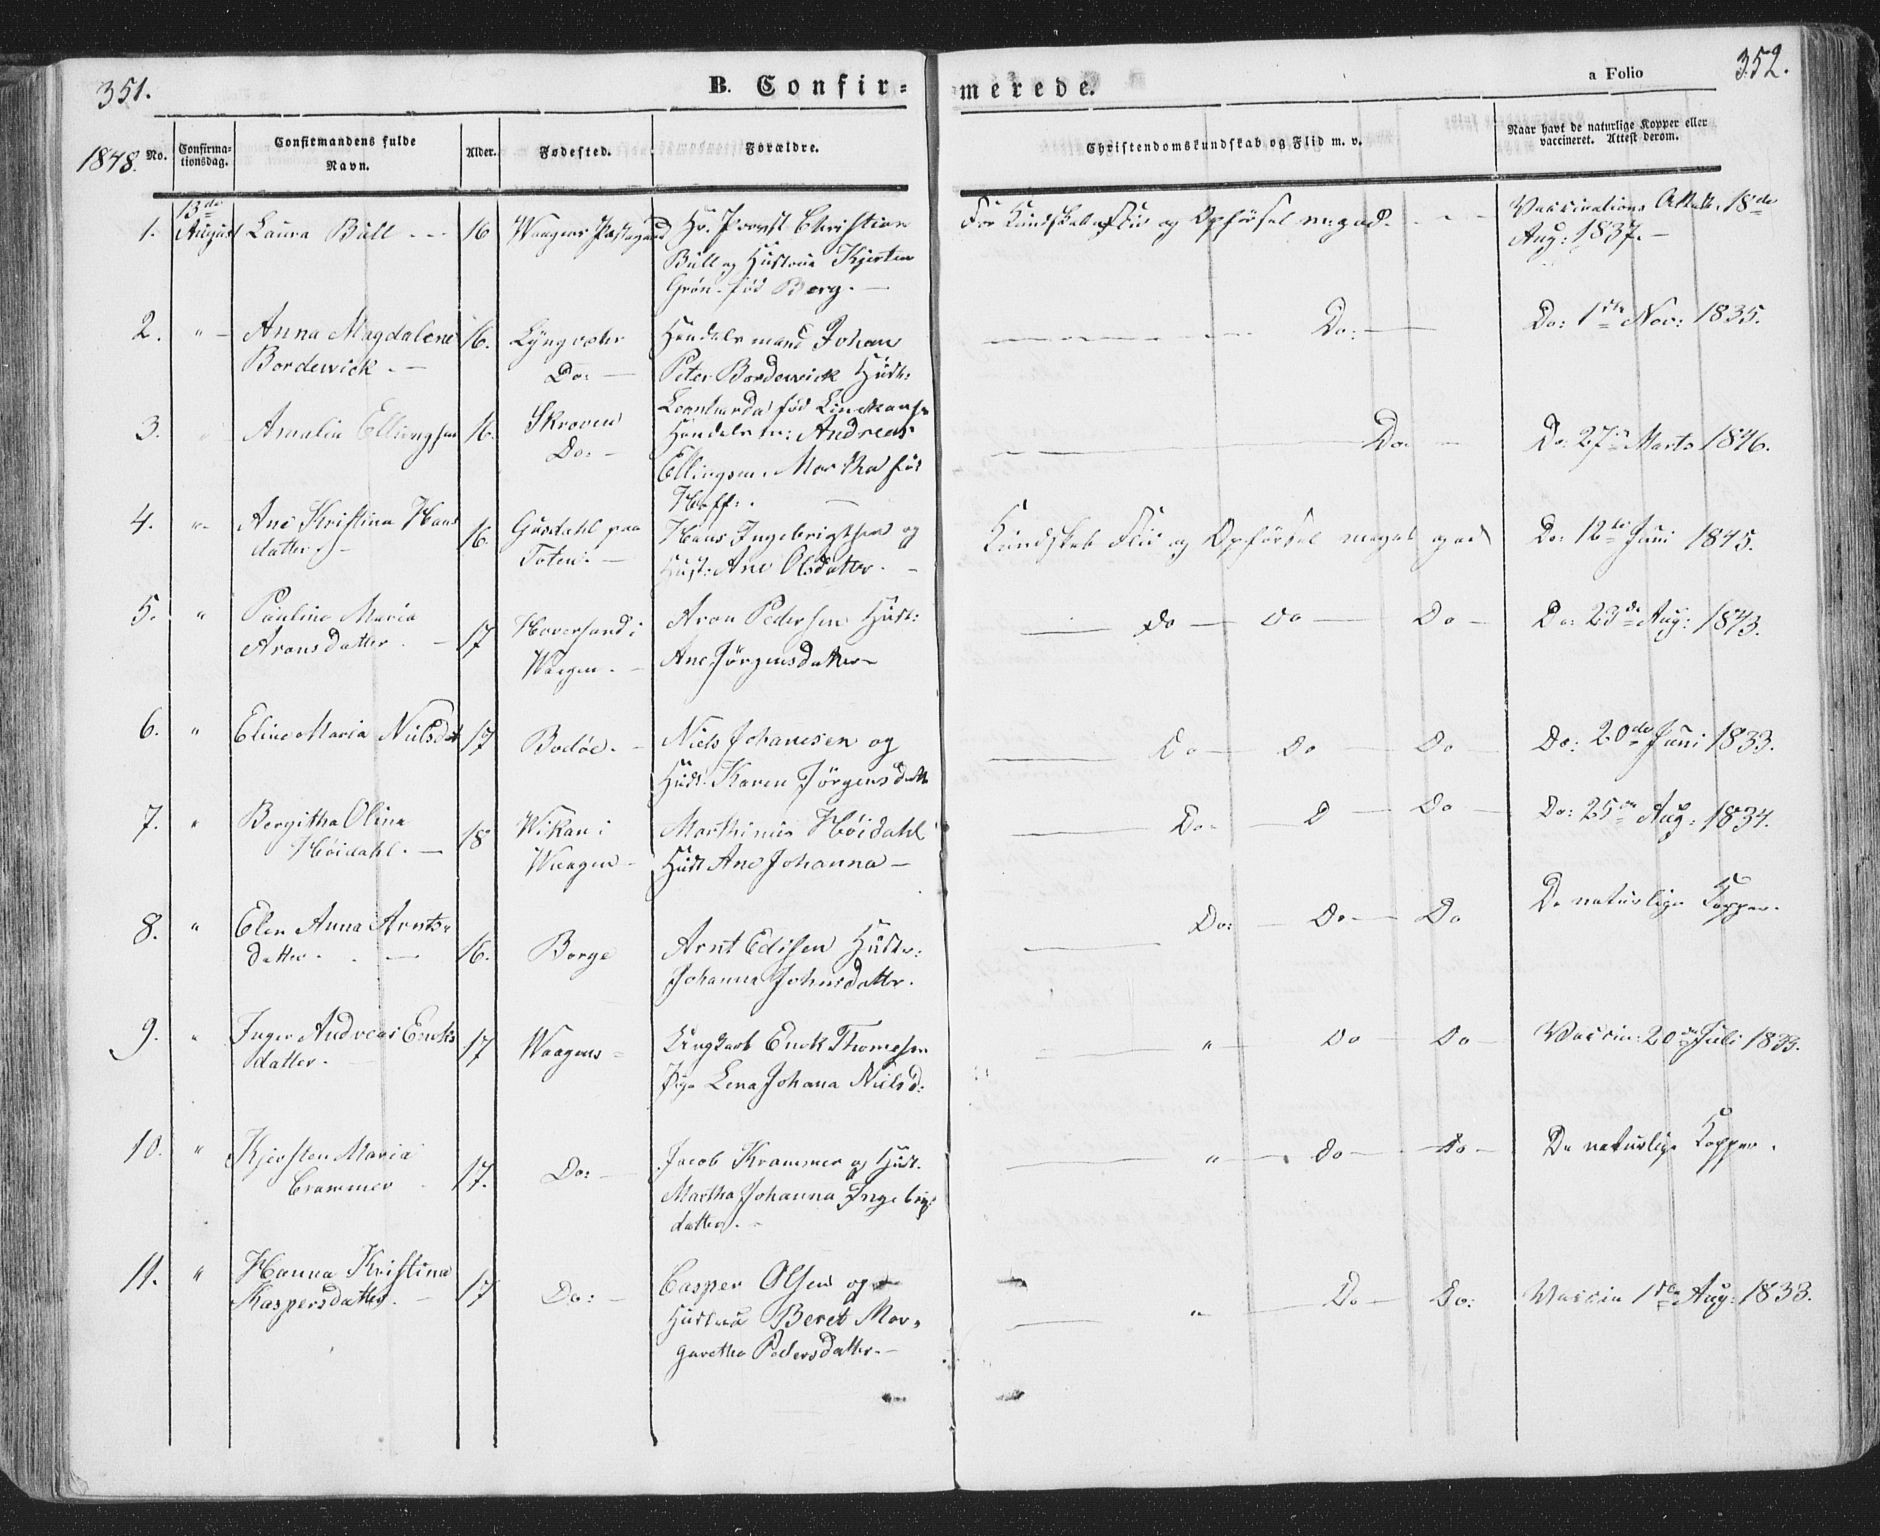 351.
B. Confir-
merede.
a Folio
352.
1848.
No.
Confirma-
tionsdag.
Confirmandens fulde
Navn.
Alder.
Fødested.
Forældre.
Christendomskundskab og Flid m. v.
Naar havt de naturlige Kopper eller
vaccineret. Attest derom.
1. 13de August Laura Bull 16 Waagens Præstegaard Hr. Provst Christian
Bull og Hustrue Kjersten
Grøn. fød Berg.
For Kundskab Flid og Opførsel m. god.
Vaccinations Attest. 18de
Aug: 1837.
2. " Anna Magdalene
Borderwick. 16. Lyngvær
Do: Handelsmand Johan
Peter Borderwick Hust:
Leonharda fød
Do: Do: 1ste Nov: 1835.
3. Amalia Ellingsen 16. Skroven
Do: Handelsm: Andreas
Ellingsen. Martha fød
Hoff.
Do: Do: 27de Marts 1846.
4. " Ane Kristina Hans
datter 16. paa
Toten. Hans Ingebrigtsen og
Hust: Ane Olsdatter.
Kundskab Flid og Opførsel meget god Do: 12te Juni 1845.
5. " Pauline Maria
Aronsdatter. 17 Hoversand i
Waagen. Aron Pedersen Hust:
Ane Jørgensdatter
Do Do Do Do: 23de Aug: 1843.
6. " Eline Maria Nielsdat 17 Bodøe. Niels Johanesen og
Hust. Karen Jørgensdatt
Do Do Do Do: 20de Juni 1833.
7. " Bergitha Olina
Høidahl. 18 Wikan i
Waagen Marthinus Høidahl
Hust Ane Johanna
Do: D Do Do: 25de Aug: 1834.
8. " Elen Anna Arnts-
datter. 16. Borge Arnt Edisen Hustr:
Johanna Johnsdattr.
Do: Do Do De naturlige Kopper.
9. " Inger Andreas Enoks
datter. 17 Waagens Ungkarl Enok Thomesen
Pige Lena Johana Nielsd:
" Do Do Vaccin: 20de Juli 1833.
10. " Kjersten Maria
Crammer 17. Do: Jacob Krammer og Hust.
Martha Johanna Ingebrig:
datter.
" Do Do De naturlige Kopper.
11. " Hanna Kristina
Kaspersdatter. 17 Do: Casper Olsen og
Hustrue Beret Mar-
garetha Pedersdatter.
" Do Do: Vaccin 1ste Aug: 1833.